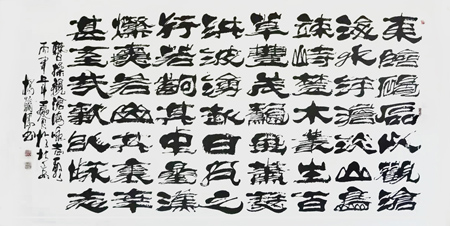 東臨碣石以觀滄
海水何澹澹山島
竦峙樹木叢生百
草豐茂秋風蕭瑟
洪波湧起日月之
行若出其中星漢
燦爛若出其裏幸
甚至哉歌以詠志
曹操觀滄海
丙申年